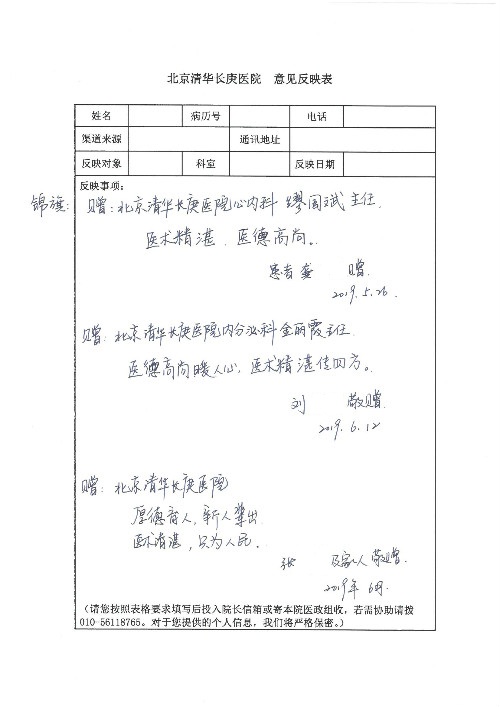 北京清华长庚医院 意见反映表
姓名 病历号 电话
渠道来源 通讯地址
反映对象 科室 反映日期
反映事项:
锦旗: 赠:北京清华长庚医院心内科 缪国斌 主任.
医术精湛、医德高尚。
患者 龚 赠.
2019.5.26.
赠:北京清华长庚医院内分泌科金丽霞主任.
医德高尚暖人心,医术精湛传四方。
刘 敬赠.
2019.6.12
赠:北京清华长庚医院
厚德育人,新人辈出
医术精湛,只为人民.
张 及家人 敬赠.
2019年 6月.
(请您按照表格要求填写后投入院长信箱或寄本院医政组收,若需协助请拨
010-56118765。对于您提供的个人信息,我们将严格保密。)